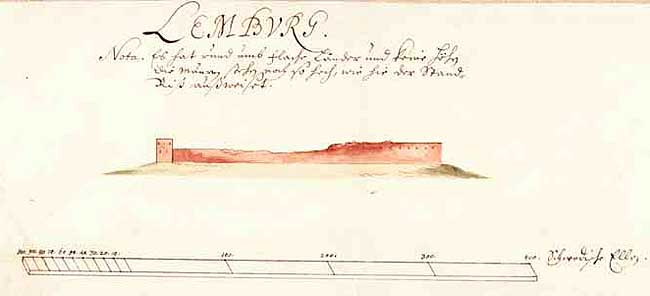 LEMBVRG.
Nota. Es hat rund umb flache Länder und keine Höhe
Die Mauren sehn noch so hoch, wie hie der Stand-
Riß außweiset.
100. 90. 80. 70. 60. 50. 40. 30. 20. 10. 100. 200. 300. 400. Schwedische Ellen.